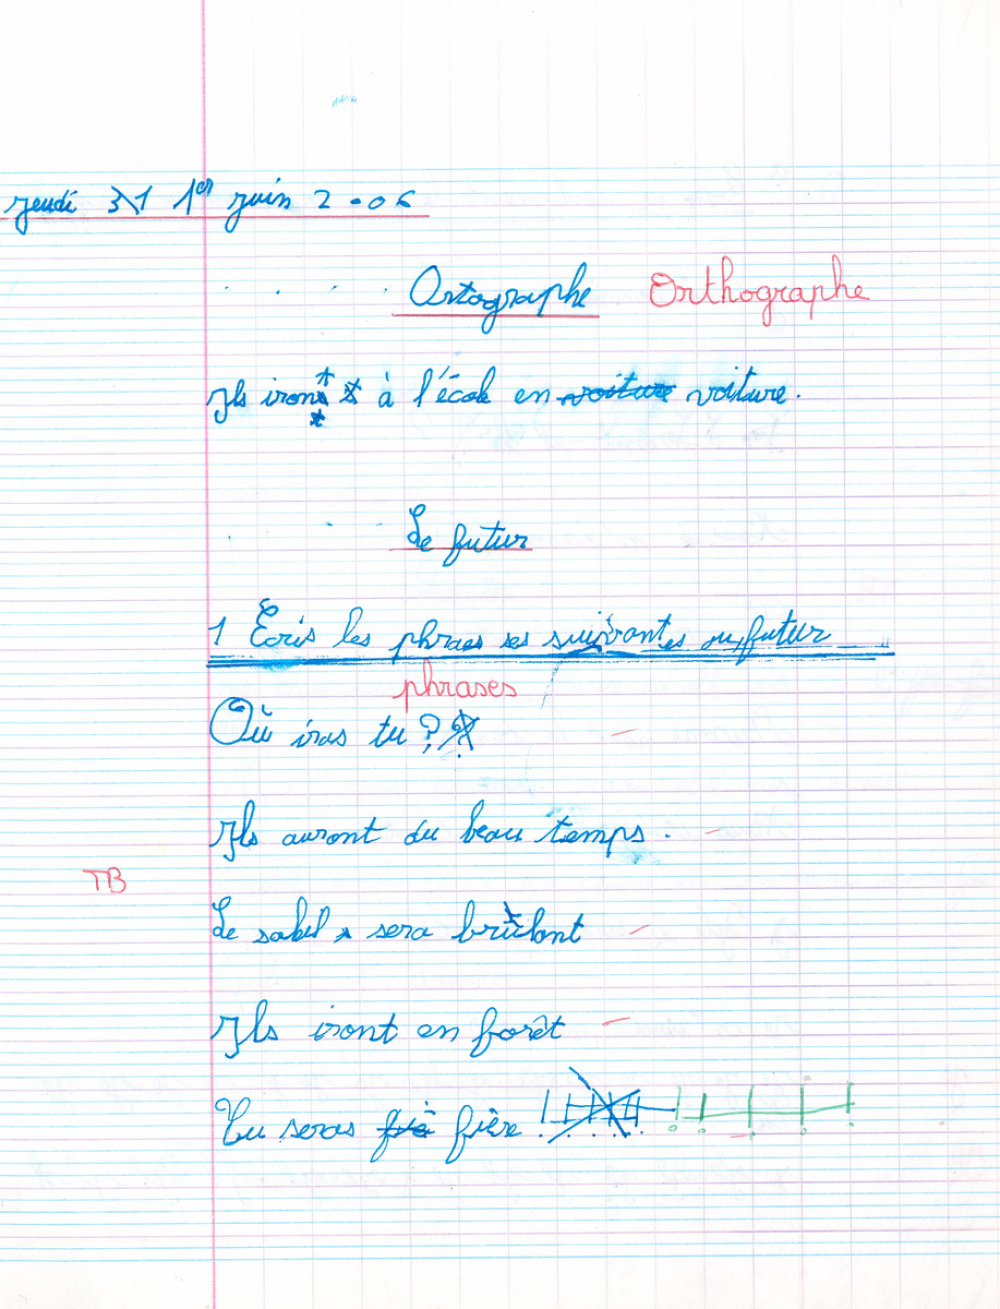 jeudi 31 1er juin 2006
Ortographe Orthographe
Ils iront à l'école en voiture voiture.
Le futur
1 Ecris les phraes ses suivantes au futur
phrases
Où iras tu ?
Ils auront du beau temps.
TB
Le sabel sera brûlant
Ils iront en forêt
Tu seras fiè fière !